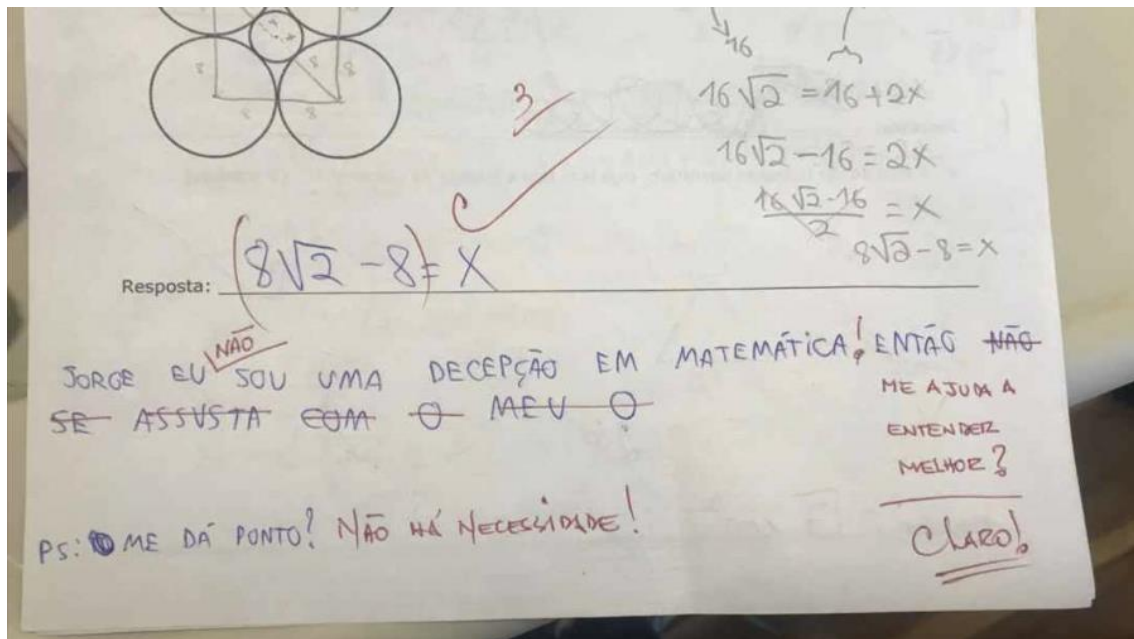 8
8
8
8
8
16
16√2 = 16+2x
3
16√2 - 16 = 2x
16√2-16 / 2 = x
8√2 - 8 = x
(8√2 - 8) = X
Resposta:
NÃO
JORGE EU SOU UMA DECEPÇÃO EM MATEMÁTICA! ENTÃO NÃO
SE ASSUSTA COM O MEU O
ME AJUDA A
ENTENDER
MELHOR?
PS: ME DÁ PONTO? NÃO HÁ NECESSIDADE!
CLARO!